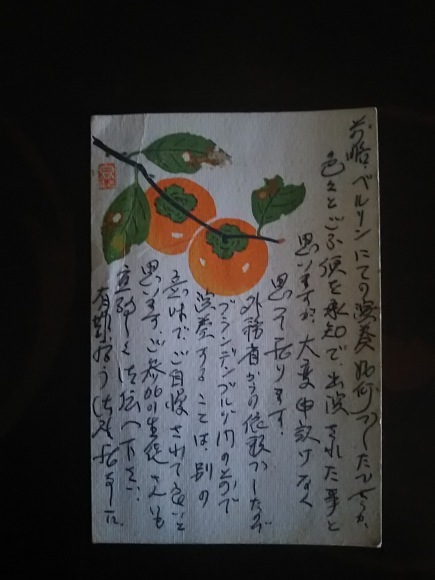 前略 ベルリンにての演奏如何でしたでせうか、
色々とご不便を承知で出演された事と
思いますが、大変申訳けなく
思って居ります。
外務省からの依頼でしたが
ブランデンブルグ門の前で
演奏することは、別の
意味で、ご自慢されて良いと
思います。ご参加の生徒さんにも
宜敷くお伝へ下さい。
有難う